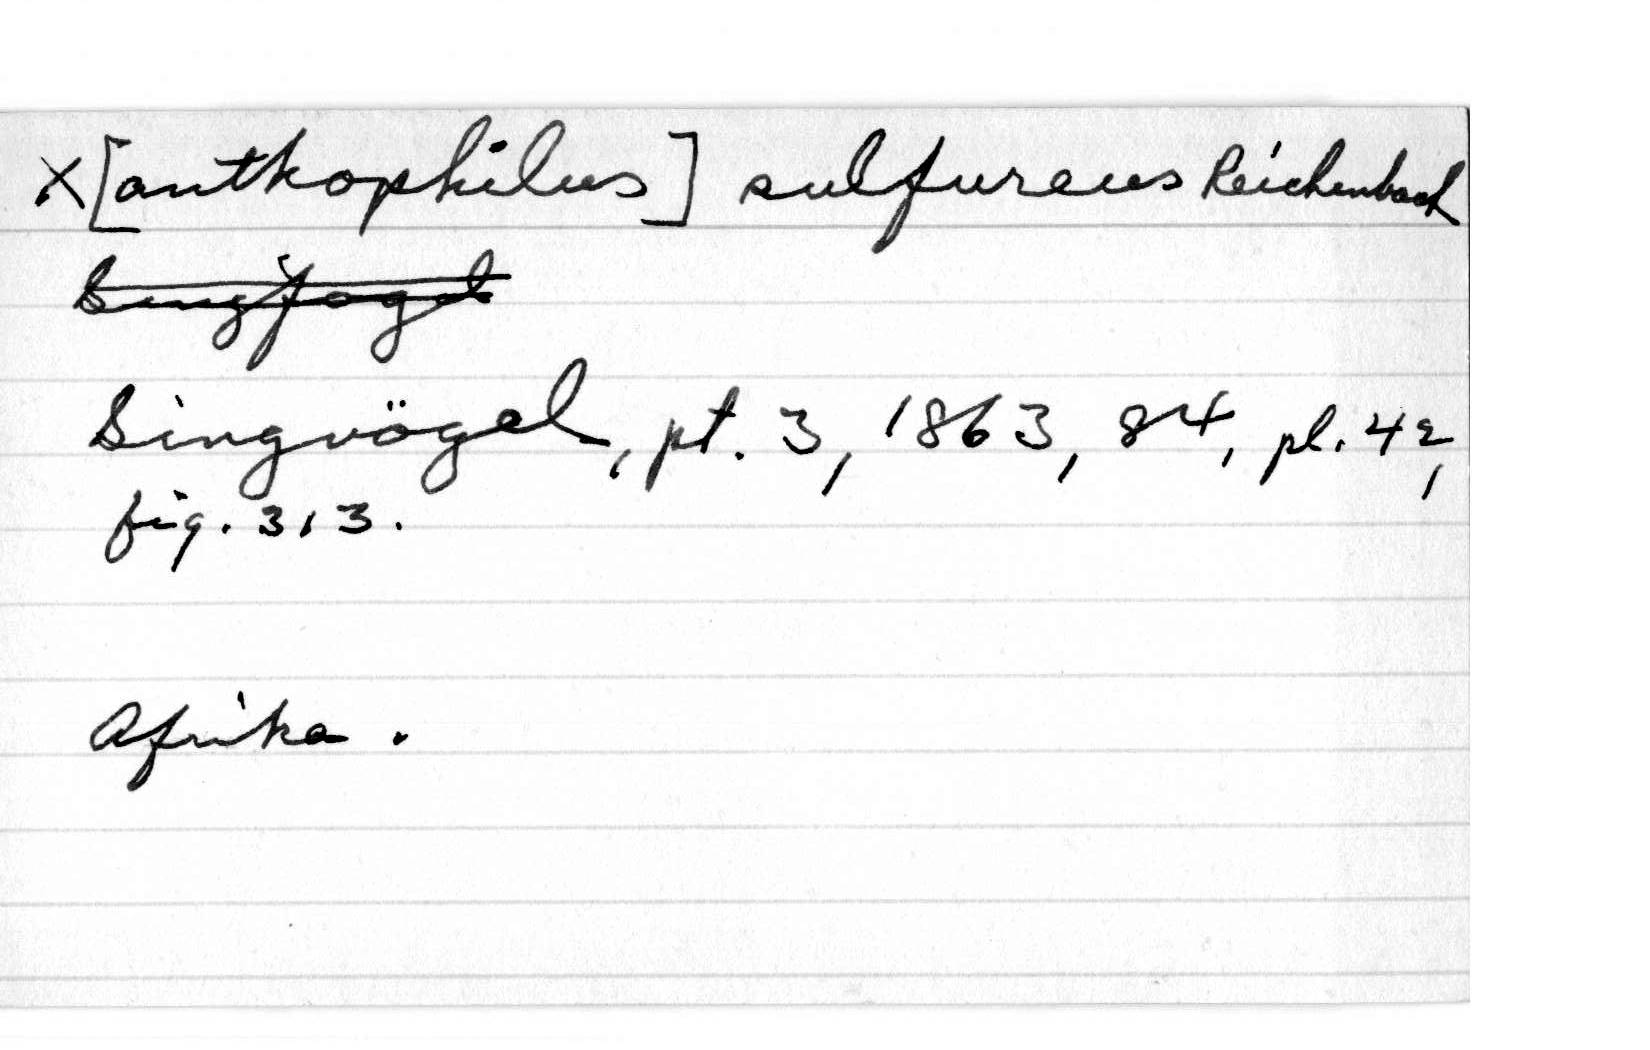 X[anthophilus] sulfureus Reichenbach
Singfogel
Singvögel, pt. 3, 1863, 84, pl. 42,
fig. 313.
Afrika.